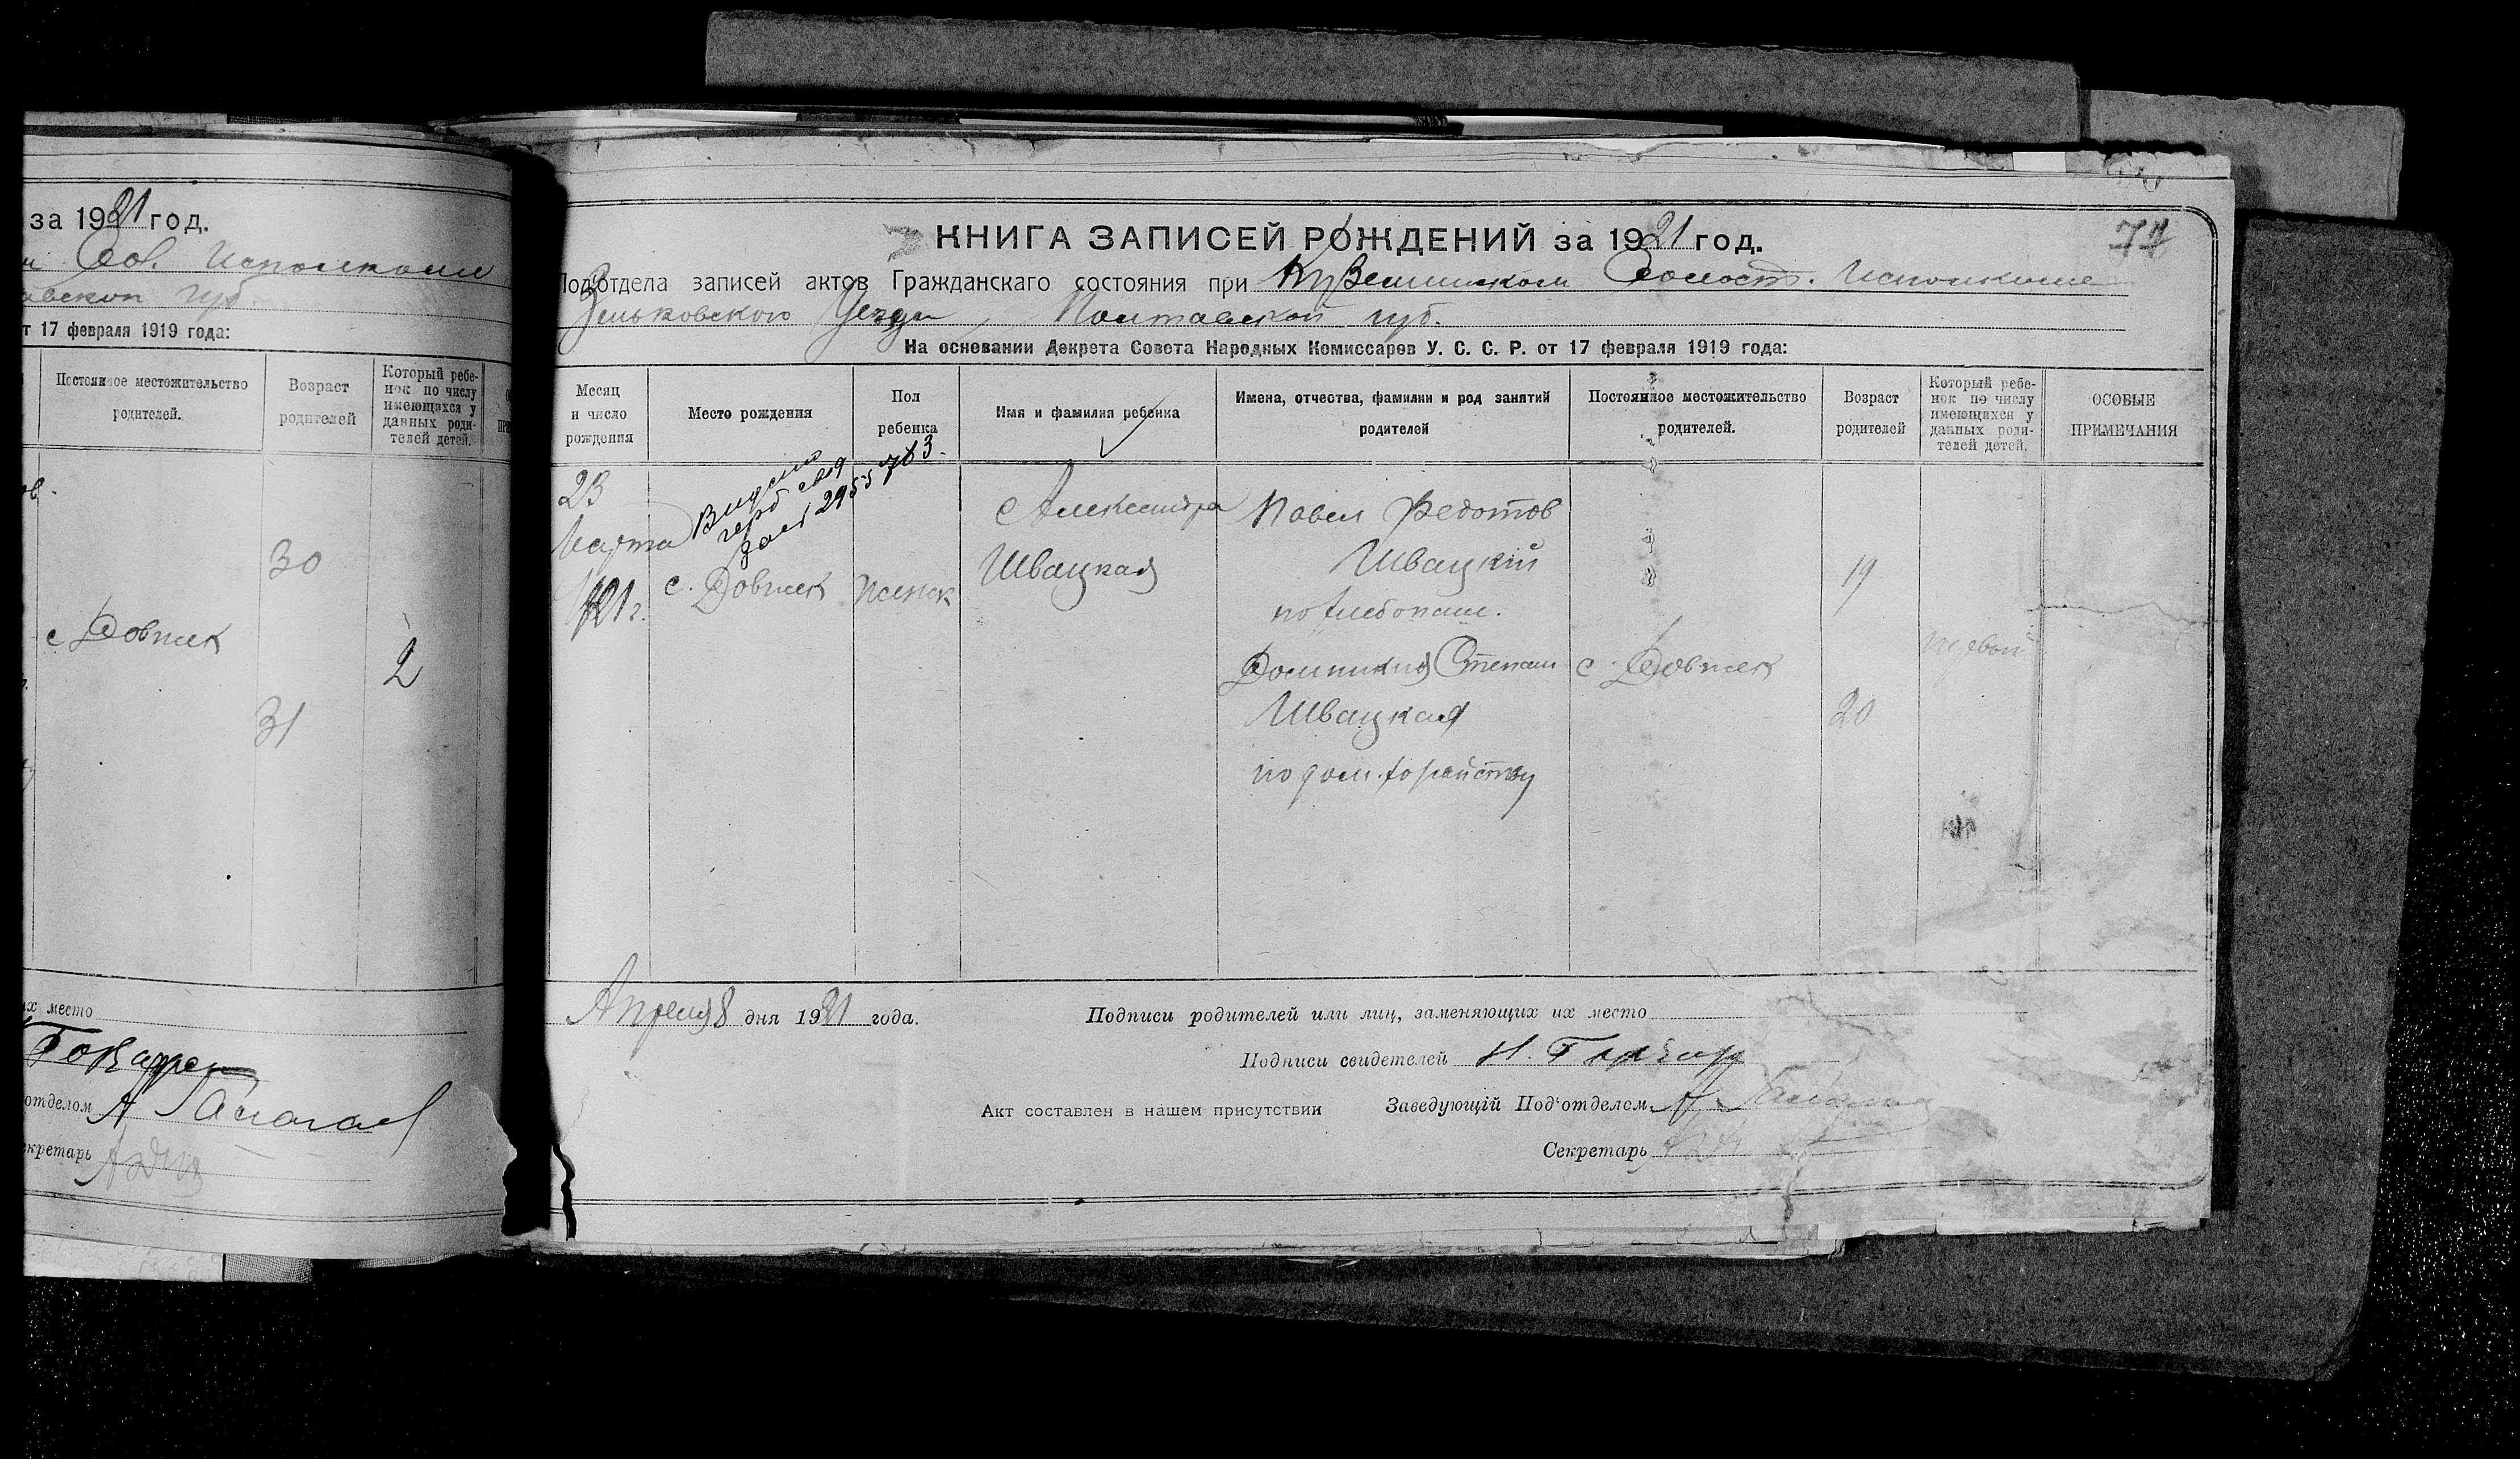 за 1921 год.
Исполкоми
губ.
т 17 февраля 1919 года:
Постоянное местожительство
родителей.
Возраст
родителей
Который ребе-
нок по числу
имеющихся у
данных роди-
телей детей.
30
с Довжек
2
31
их место
отделом А
екретарь
77
КНИГА ЗАПИСЕЙ РОЖДЕНИЙ за 1921 год.
Под'отдела записей актов Гражданскаго состояния при Волост. Исполкоме
Зеньковского Уезда, Полтавской губ.
На основании Декрета Совета Народных Комиссаров У. С. С. Р. от 17 февраля 1919 года:
Месяц
и число
рождения
Место рождения
Пол
ребенка
Имя и фамилия ребенка
Имена, отчества, фамилии и род занятий
родителей
Постоянное местожительство
родителей.
Возраст
родителей
Который ребе-
нок по числу
имеющихся у
данных роди-
телей детей.
ОСОБЫЕ
ПРИМЕЧАНИЯ
23
Марта
1921 г.
с. Довжек
женск
Александра
Швацкая
Павел Федотов
Швацкій
по хлебопаш.
Степан
Швацкая
по дом. хозяйству
с. Довжек
19
20
Апреля 8 дня 1921 года.
Подписи родителей или лиц, заменяющих их место
Подписи свидетелей
Акт составлен в нашем присутствии
Заведующій Под'отделом А.
Секретарь